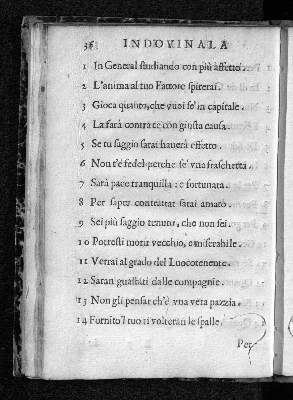 36 INDOVINALA
1 In General studiando con più affetto.
2 L'anima al tuo Fattore spirerai.
3 Gioca quanto, che vuoi se' in capitale.
4 La farà contra te con giusta causa.
5 Se tu saggio sarai hauerà effetto.
6 Non t'è fedel perche se' vna fraschetta.
7 Sarà pace tranquilla : e fortunata.
8 Per saper contrattar sarai amato.
9 Sei più saggio tenuto, che non sei.
10 Potresti morir vecchio, e miserabile.
11 Verrai al grado del Luocotenente.
12 Saran guastati dalle compagnie.
13 Non gli pensar ch'è vna vera pazzia.
14 Fornito'l tuo ti volteran le spalle.
Per